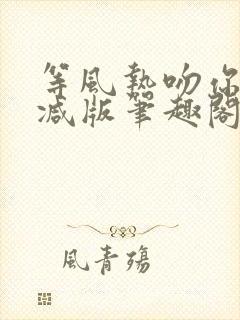 等風熱吻你
减版筆趣閣
風青殤